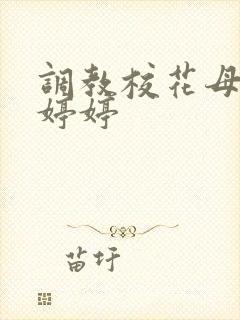 調教校花母
婷婷
苗圩